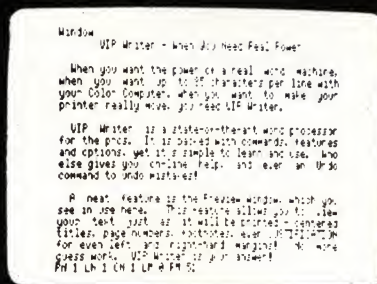 Window
VIP Writer - When You Need Real Power
When you want the power of a real word machine,
when you want up to 85 characters per line with
your Color Computer, when you want to make your
printer really move, you need VIP Writer.
VIP Writer is a state-of-the-art word processor
for the pros. It is packed with commands, features
and options, yet it's simple to learn and use. Who
else gives you on-line help, and even an Undo
command to undo mistakes!
A neat feature is the Preview window, which you
see in use here. This feature allows you to view
your text just as it will be printed - centered
titles, page numbers, footnotes, even JUSTIFICATION
for even left and right-hand margins! No more
guess work. VIP Writer is your answer!
PN 1 LN 1 CN 1 LP 0 FM